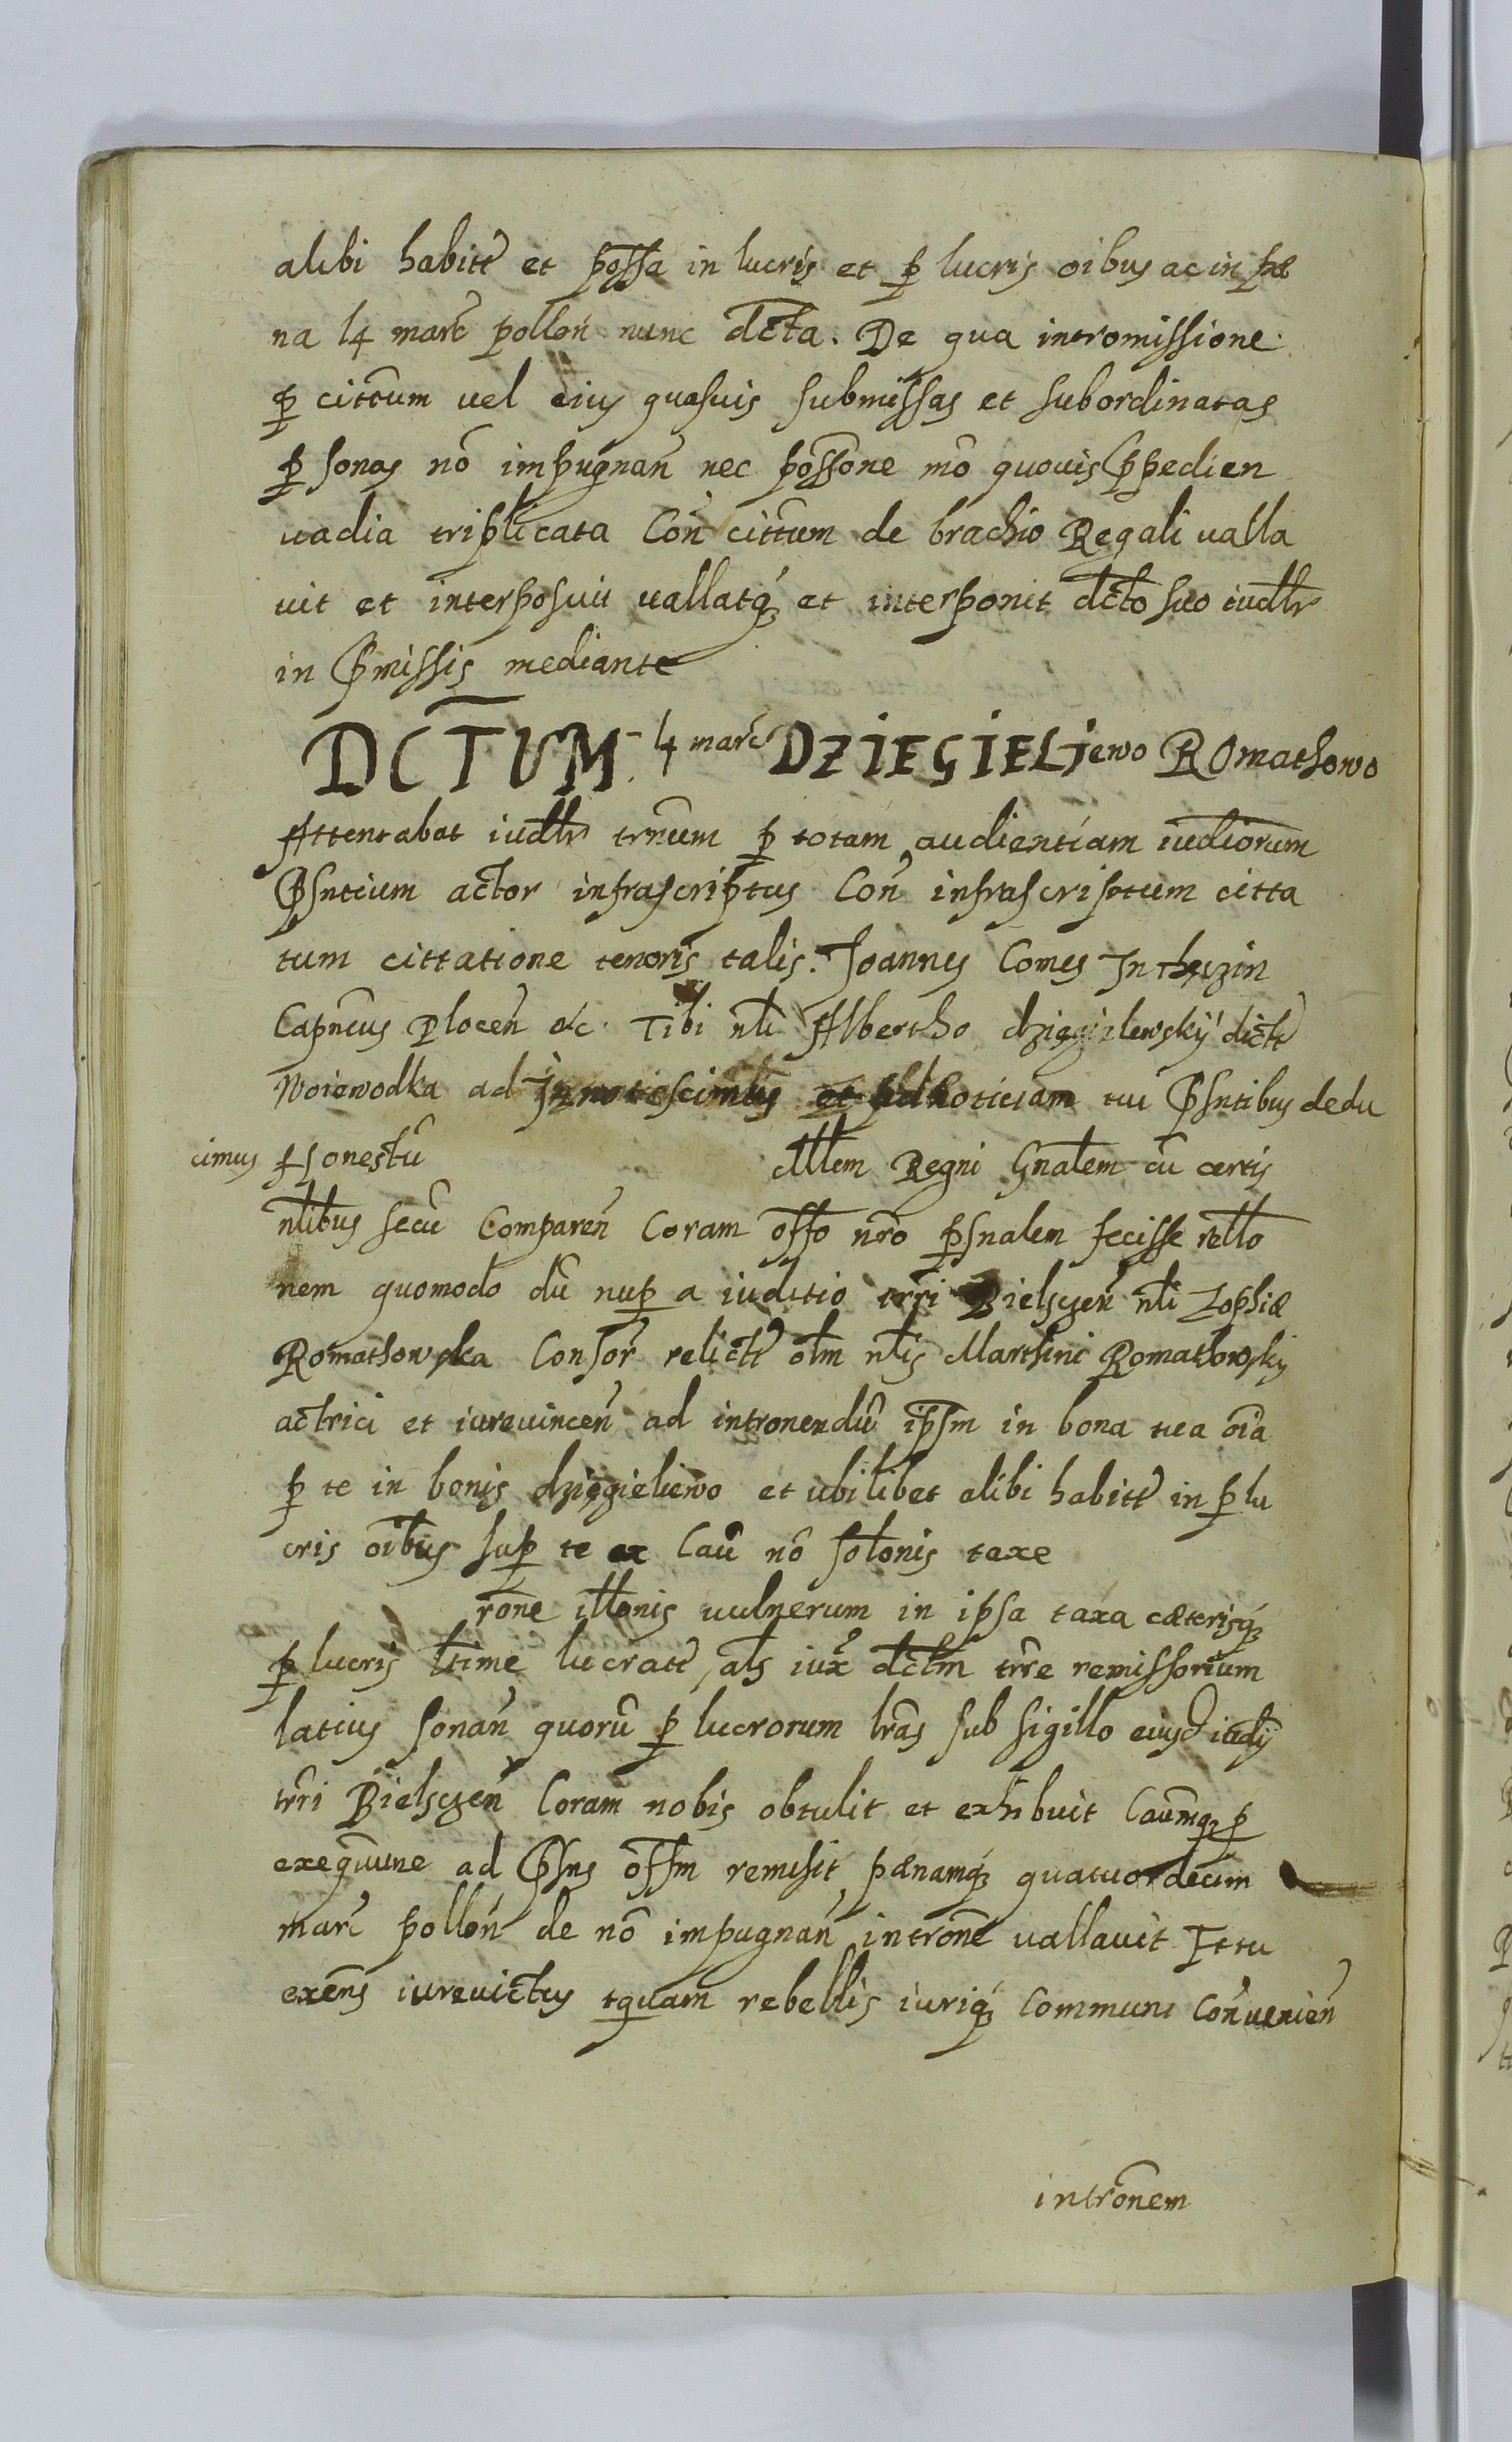 alibi habitis et possa in lucris et p lucris oibus ac in pæ
na 14 marc pollon nunc dcta. De qua intromissione
p cittum vel eius quasuis submissas et subordinatas
p sonas nō impugnan nec possone mō quouis ppedien
vadia triplicata Con cittum de brachio Regali valla
vit et interposuit vallatq et interponit dcto suo iudlr
in Pmissis mediante
DCTUM 14 marc DZIEGIELIewo ROmathowo
Attentabat iudlr trnum p totam audientiam iudiorum
Psntium actor infrascriptus Con infrascriptum citta
tum cittatione tenoris talis. Joannes Comes In
Capneus Plocen etc. Tibi nli Albertho dzięgielewsky dicte
Woiewodka ad noticiam tui Psntibus dedu
cimus Honestū Mlem Regni Gnalem cū certis
nlibus secū Comparen Coram offo nro psnalem fecisse rello
nem quomodo dū nup a iuditio trri Bielscen nli Zophiæ
Romathowska Consor relicte olm nlis Marthini Romathowsky
actrici et iurevincen ad intronendū ipsm in bona tua oia
p te in bonis dzięgieliewo et ubilibet alibi habite in p lu
cris oibus sup te ex Caū nō solonis taxe
rone illonis vulnerum in ipsa taxa cæterisq
p lucris ltime lucrate, als iux dctm trre remissorium
latius sonan quorū p lucrorum lras sub sigillo eiusd iudy
trri Bielscen Coram nobis obtulit et exhibuit Caumq p
exequune ad Psns offm remisit pænamq quatuordecim
marc pollon de nō impugnan introne vallavit Et tu
exens iurevictus tquam rebellis iuriq Communi Convenien
intronem